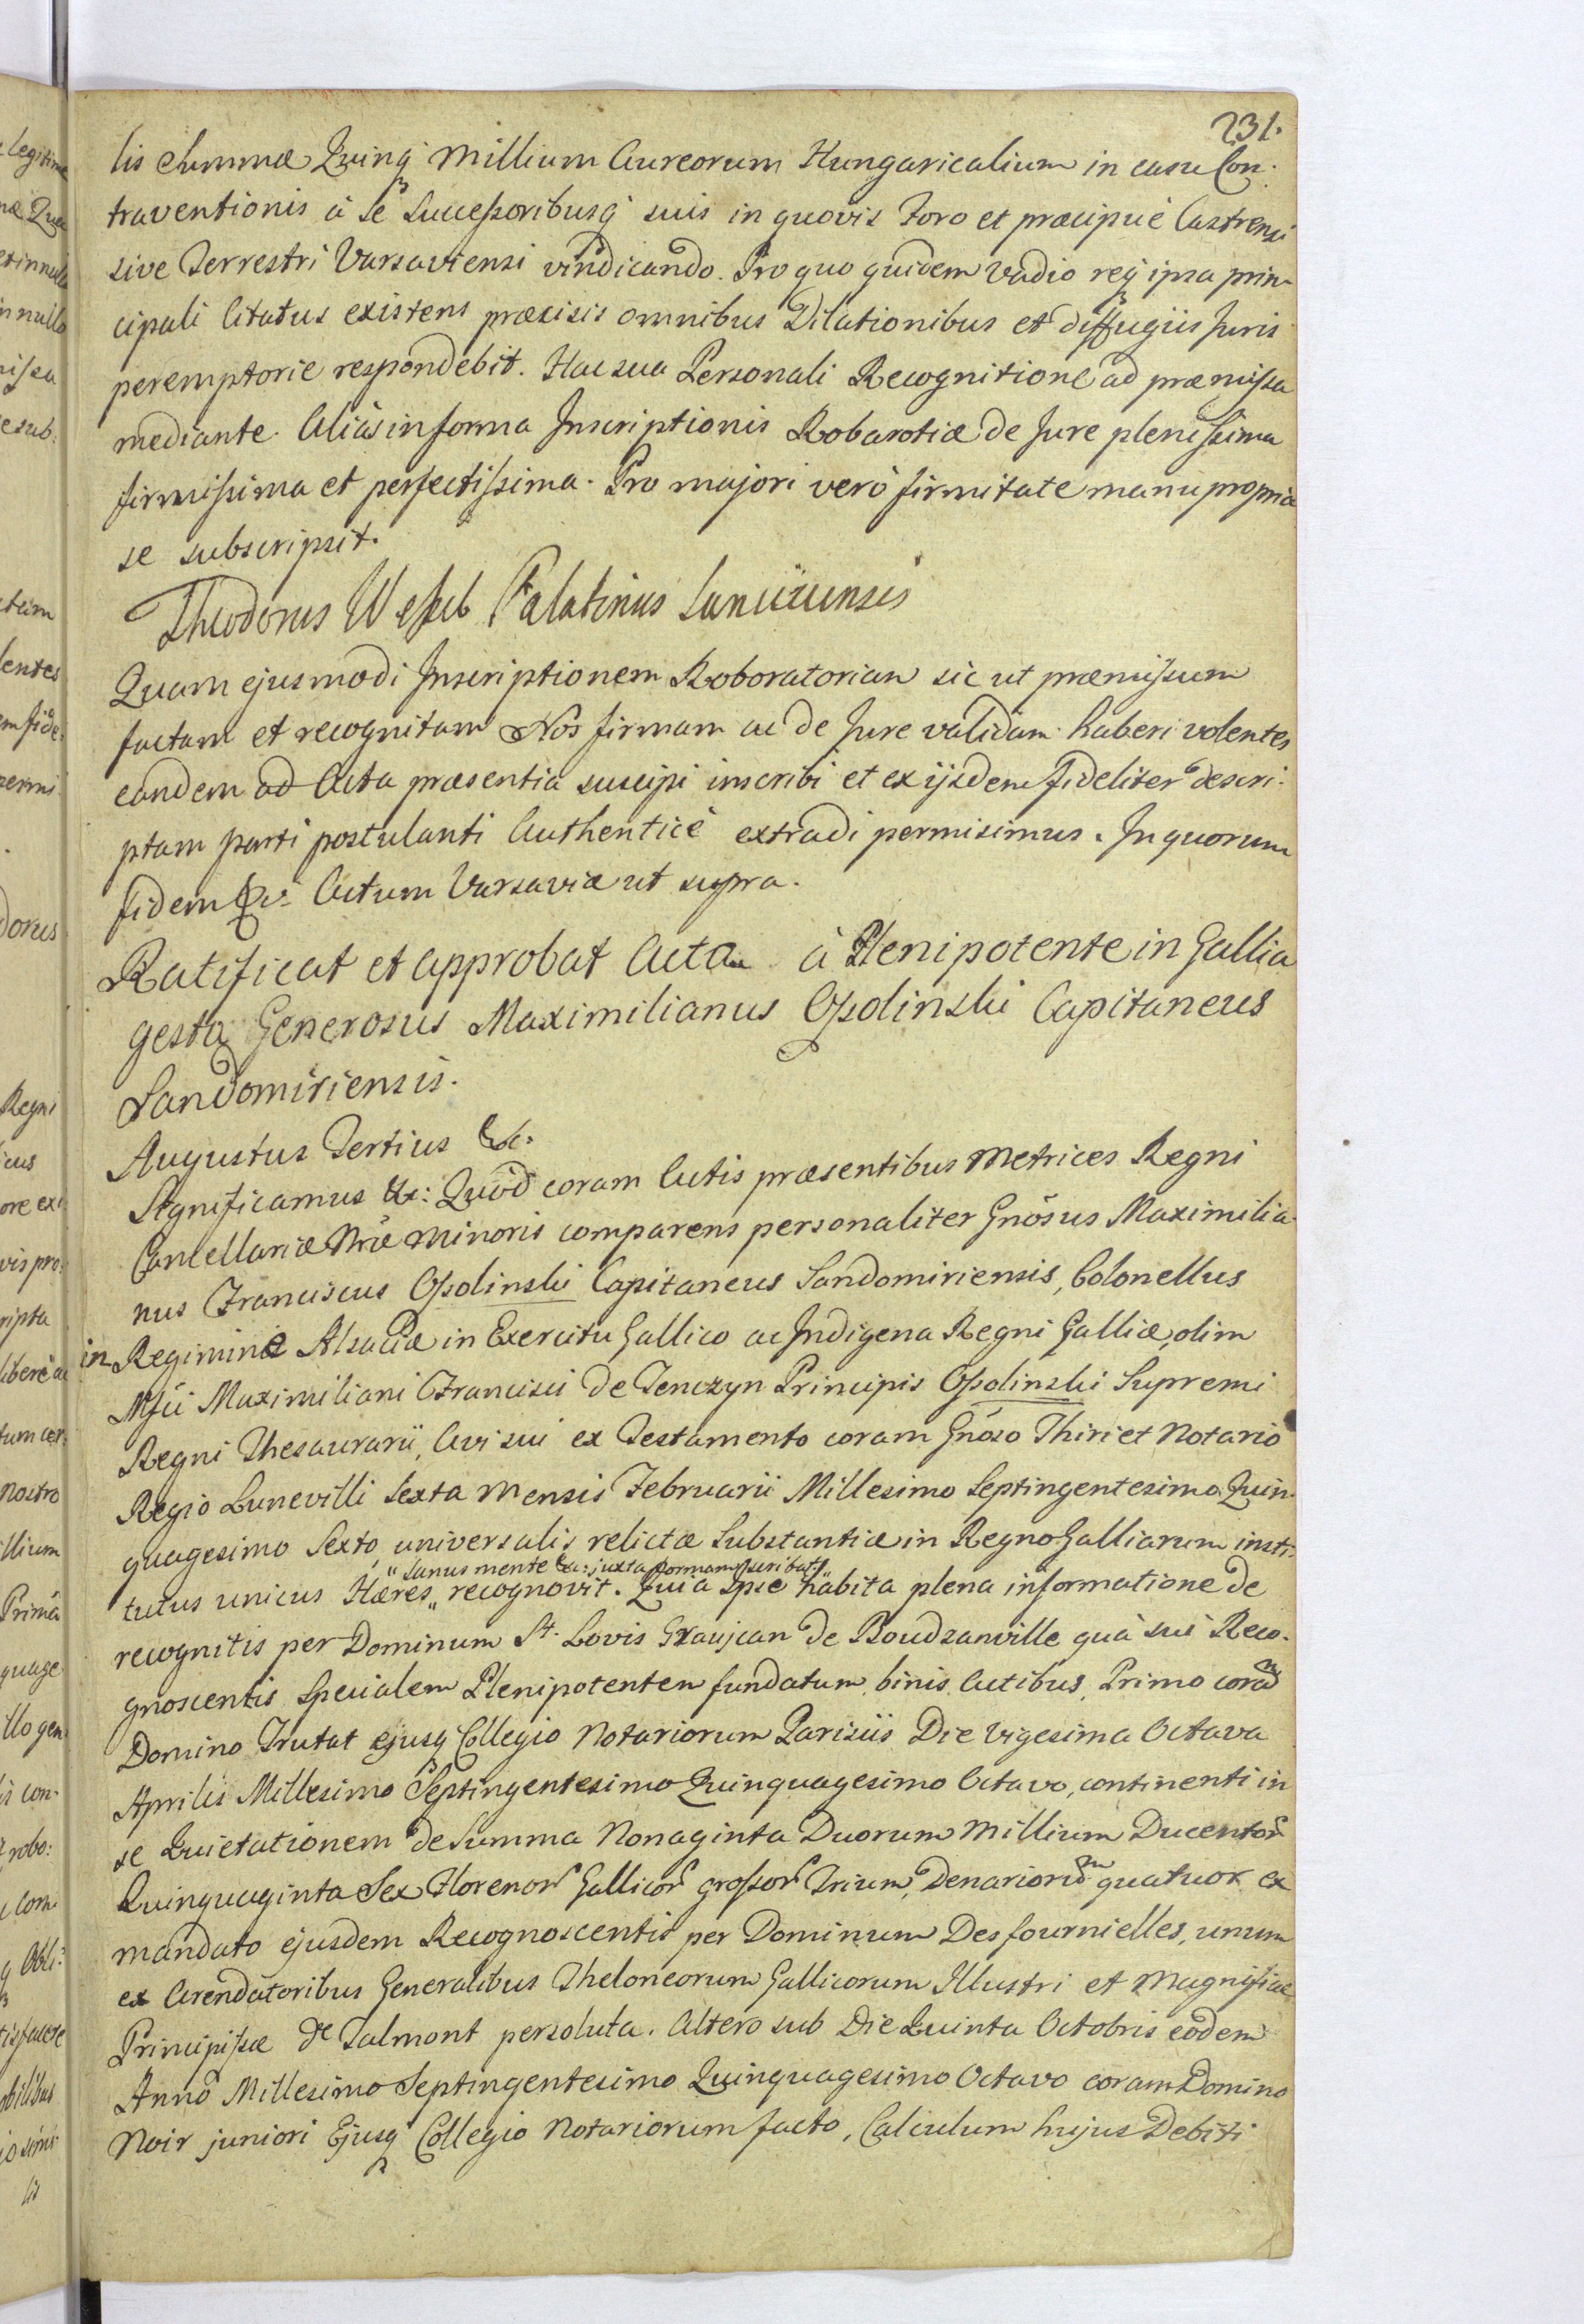 231.
lis summæ Quinq́ Millium Aureorum Hungaricalium in casu Con-
traventionis à se Successoribusq́ suis in quovis Foro et præcipuè Castrensi
sive Terrestri Varsaviensi vindicando. Pro quo quidem vadio req́ ipsa prin-
cipali Citatus existens præcisis omnibus Dilationibus et diffugiis Juris
peremptorie respondebit. Hac sua Personali Recognitione ad præmissa
mediante. Aliàs in forma Inscriptionis Robarotiæ de Jure plenissima
firmissima et perfectissima. Pro majori verò firmitate manu propria
se subscripsit.
Theodorus Wessel Palatinus
Quam ejusmodi Inscriptionem Roboratoriam sic ut præmissum
factam et recognitam Nos firmam ac de Jure validam haberi volentes
eandem ad Acta præsentia suscipi inscribi et ex ijsdem fideliter descri-
ptam parti postulanti Authenticè extradi permisimus. In quorum
fidem &c: Actum Varsaviæ ut supra.
Ratificat et approbat Acta à Plenipotente in Gallia
gesta Generosus Maximilianus Ossolinski Capitaneus
Sandomiriensis.
Augustus Tertius &c.
Significamus &c: Quòd coram Actis præsentibus Metrices Regni
Cancellariæ Nræ Minoris comparens personaliter Gnosus Maximilia-
nus Franciscus Ossolinski Capitaneus Sandomiriensis, Colonellus
in Regimine Alsaciæ in Exercitu Gallico ac Indigena Regni Galliæ, olim
Maximiliani Francisci de Tenczyn Principis Ossolinski Supremi
Regni Thesaurarii, Avi sui ex Testamento coram Gnoso Thiriet Notario
Regio Lunevilli Sexta Mensis Februarii Millesimo Septingentesimo Quin-
quagesimo Sexto, universalis relictæ Substantiæ in Regno Galliarum insti-
" sanus mente &c: juxta formam scribat "
tutus unicus Hæres " recognovit. Quia Ipse habita plena informatione de
recognitis per Dominum St. Lovis Graujean de Boudzanville quà sui Reco-
gnoscentis Specialem Plenipotentem fundatum, binis Actibus, Primo coram
Domino Trutat ejusq́ Collegio Notariorum Parisiis Die Vigesima Octava
Aprilis Millesimo Septingentesimo Quinquagesimo Octavo, continenti in
se Quietationem de Summa Nonaginta Duorum Millium Ducentor
Quinquaginta Sex Florenor Gallicor grossor Trium, Denariorum quatuor ex
mandato ejusdem Recognoscentis per Dominum Desfournielles, unum
ex Arendatoribus Generalibus Theloneorum Gallicorum Illustri et Magnificæ
Principissæ de Talmont persoluta. Altero sub Die Quinta Octobris eodem
Anno Millesimo Septingentesimo Quinquagesimo Octavo coram Domino
Noir juniori Ejusq́ Collegio Notariorum facto, Calculum hujus Debiti